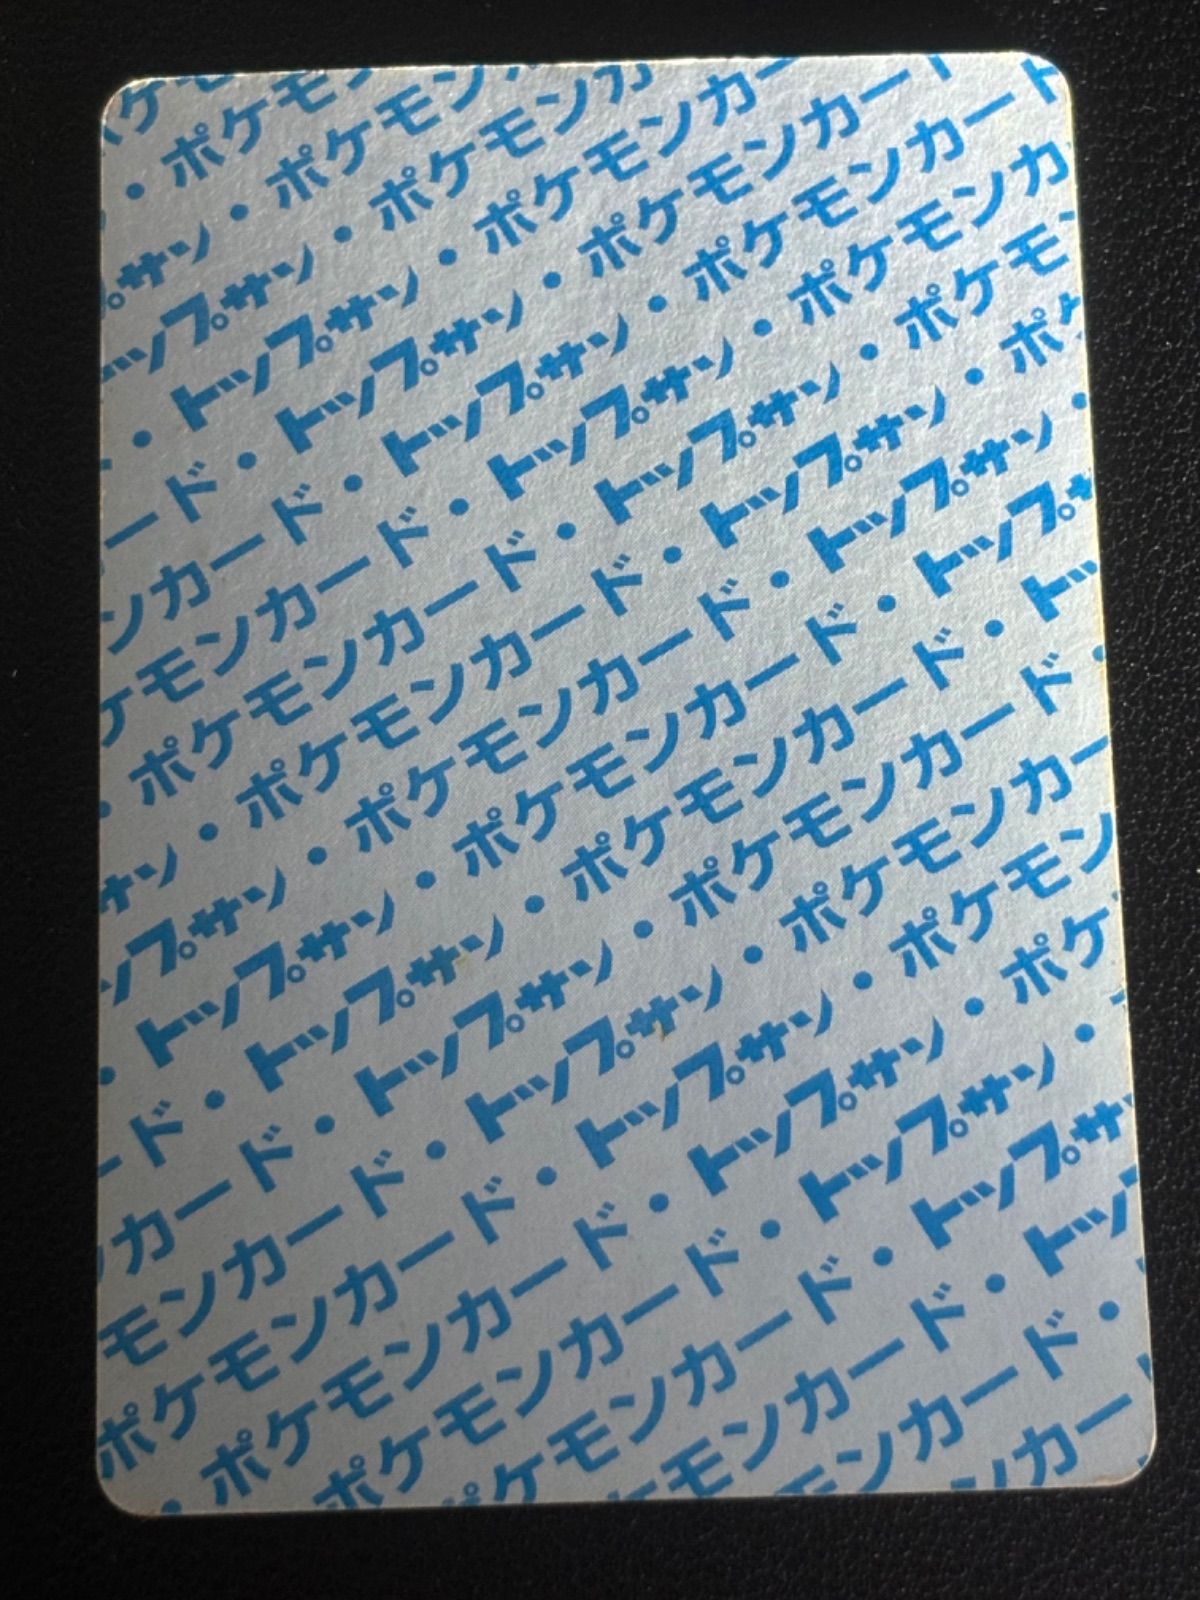 ポケモ
・ポケモン
プサン・ポケモン
ップサン・ポケモンカ
・トップサン・ポケモンカー
ード・トップサン・ポケモンカード
ンカード・トップサン・ポケモンカード
ケモンカード・トップサン・ポケモンカ
・ポケモンカード・トップサン・ポケモ
サン・ポケモンカード・トップサン・ポケ
ップサン・ポケモンカード・トップサン・
・トップサン・ポケモンカード・トップサ
ード・トップサン・ポケモンカード・トッ
ンカード・トップサン・ポケモンカード・
モンカード・トップサン・ポケモンカー
ポケモンカード・トップサン・ポケモン
・ポケモンカード・トップサン・ポケ
ポケモンカード・トップサン・
ポケモンカード・トップサ
モンカード・トッ
モンカード・
ンカー